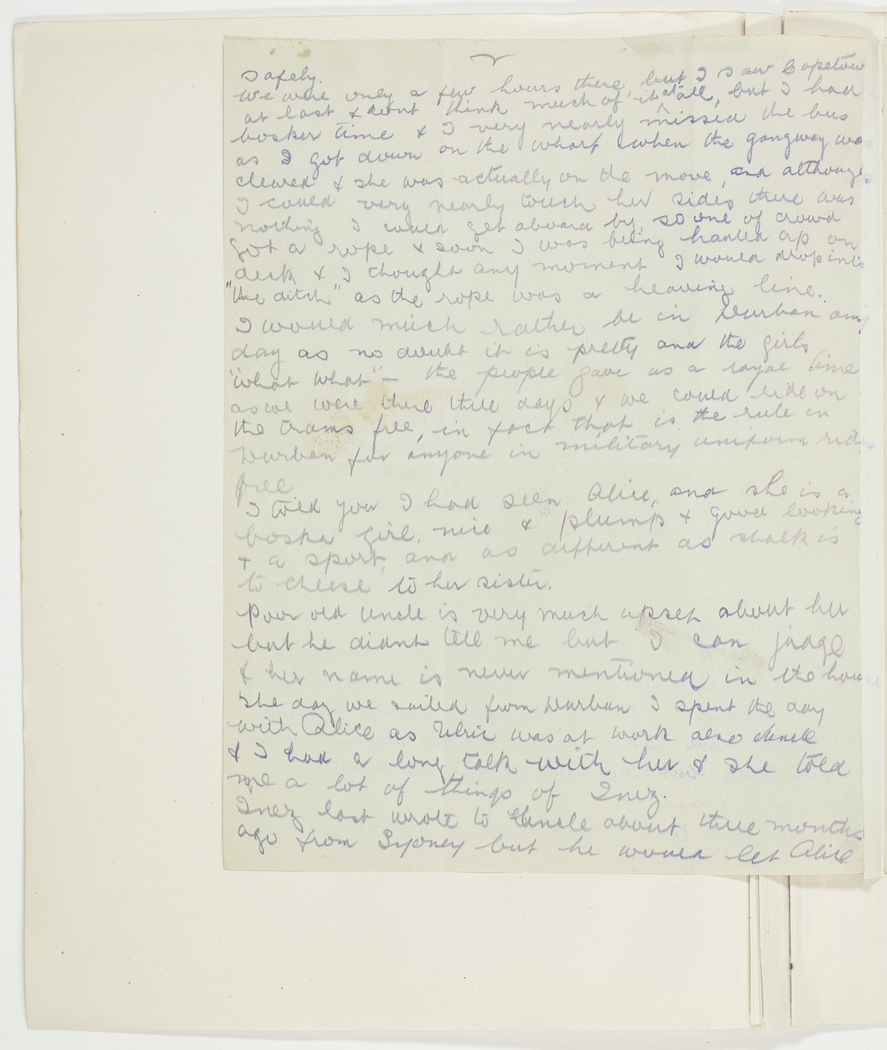 safely.
We were only a few hours there, but I saw Capetow
at last & dont think much of it at all, but I had
bosker time & I very nearly missed the bus
as I got down on the wharf when the gangway was
cleared & she was actually on the move, and althoug
I could very nearly touch her sides there was
nothing I could get aboard by, so one of crowd
got a rope & soon I was being hauled up on
deck & I thought any moment I would drop into
"the ditch" as the rope was a heaving line.
I would much rather be in Durban any
day as no doubt it is pretty and the girls
"what what" – the people gave us a royal time
as we were there three days & we could ride on
the trams free, in fact that is the rule in
Durban for anyone in military uniform rides
free
I told you I had seen Alice, and she is a
boska girl, nice & plump & good looking
& a sport, and as different as chalk is
to cheese to her sister.
Poor old Uncle is very much upset about her
but he didnt tell me but I can judge
& her name is never mentioned in the house
The day we sailed from Durban I spent the day
with Alice as Ulric was at work also Uncle
& I had a long talk with her & she told
me a lot of things of Inez.
Inez last wrote to Uncle about three months
ago from Sydney but he would let Alice